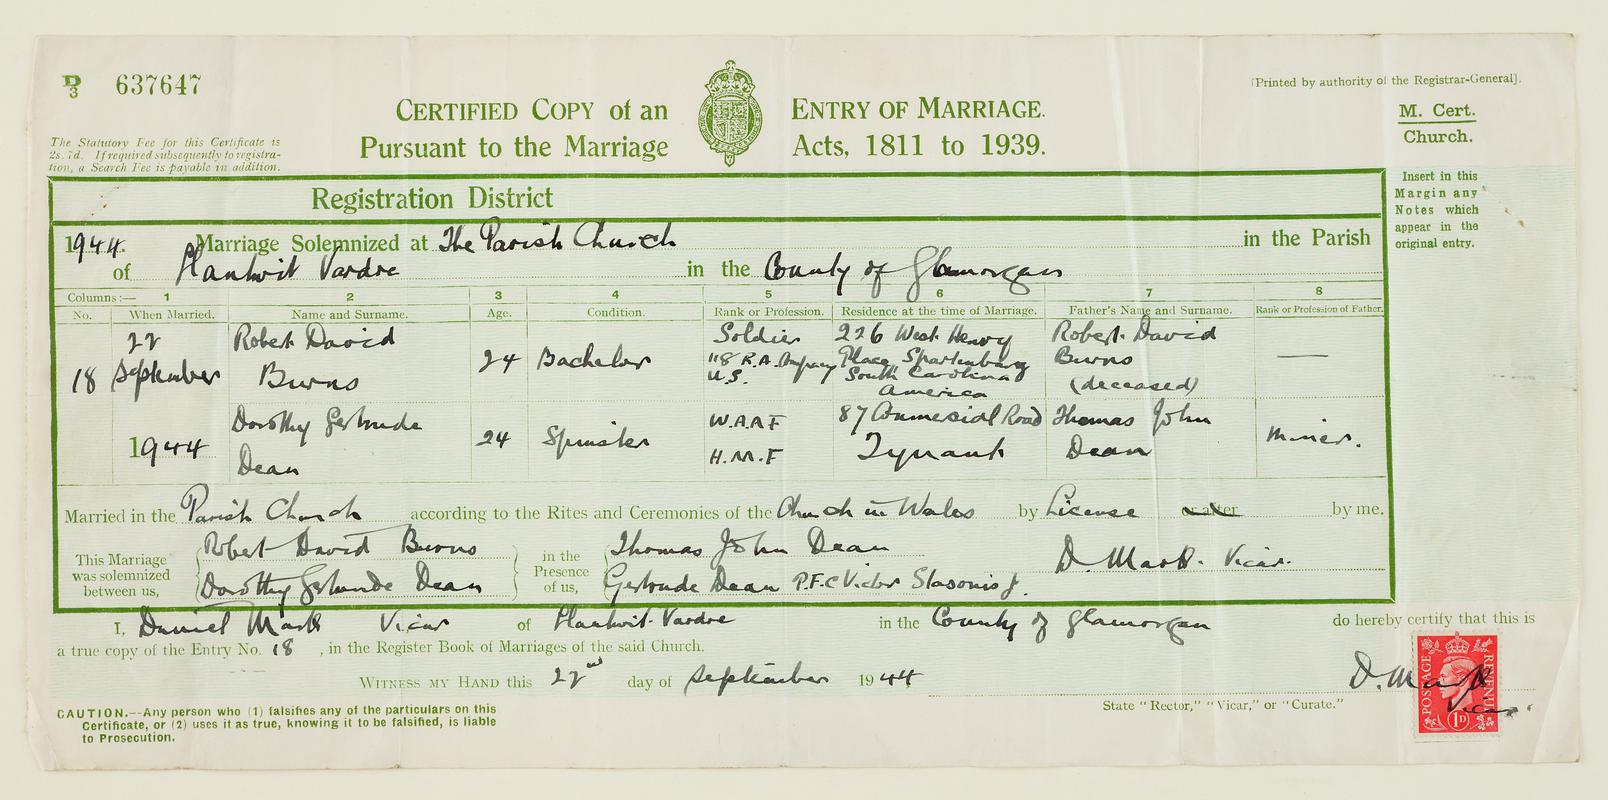 D/3 637647
[Printed by authority of the Registrar-General].
CERTIFIED COPY of an ENTRY OF MARRIAGE.
Pursuant to the Marriage Acts, 1811 to 1939.
M. Cert.
Church.
The Statutory Fee for this Certificate is
2s. 7d. If required subsequently to registra-
tion, a Search Fee is payable in addition.
Insert in this
Margin any
Notes which
appear in the
original entry.
Registration District
1944. Marriage Solemnized at The Parish Church in the Parish
of Llantwit Vardre in the County of Glamorgan
Columns:— 1 2 3 4 5 6 7 8
No. When Married. Name and Surname. Age. Condition. Rank or Profession. Residence at the time of Marriage. Father's Name and Surname. Rank or Profession of Father.
18
22
September
1944
Robert David
Burns
24
Bachelor
Soldier
118 R.A.
U.S.
226 West Henry
Place Spartenburg
South Carolina
America
Robert David
Burns
(deceased)
—
Dorothy Gertrude
Dean
24
Spinster
W.A.A.F
H.M.F
87 Commercial Road
Tynant
Thomas John
Dean
Miner.
Married in the Parish Church according to the Rites and Ceremonies of the Church in Wales by License or after by me.
This Marriage
was solemnized
between us,
Robert David Burns
Dorothy Gertrude Dean
in the
Presence
of us,
Thomas John Dean
Gertrude Dean P.F.C Victor
D. Mark. Vicar.
I, Daniel Mark Vicar of Llantwit Vardre in the County of Glamorgan do hereby certify that this is
a true copy of the Entry No. 18, in the Register Book of Marriages of the said Church.
WITNESS MY HAND this 22nd day of September 1944
D. Mark
Vicar.
State "Rector," "Vicar," or "Curate."
POSTAGE REVENUE
1D
CAUTION.—Any person who (1) falsifies any of the particulars on this
Certificate, or (2) uses it as true, knowing it to be falsified, is liable
to Prosecution.